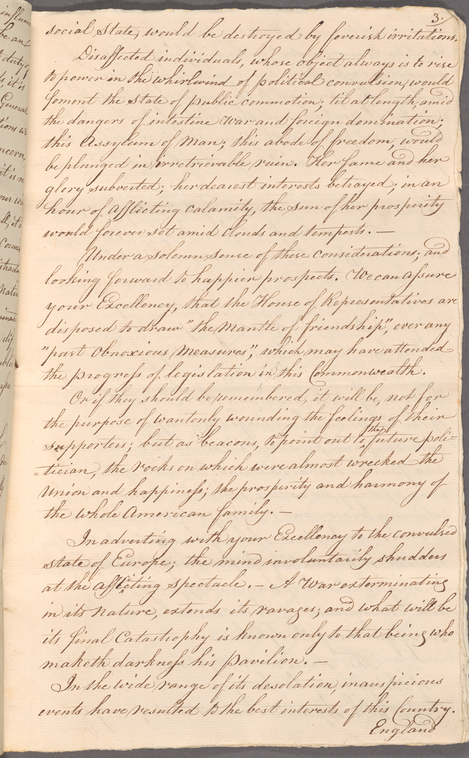 3.
social State, would be destroyed by foreign irritations.
Disaffected individuals, whose object always is to rise
to power in the whirlwind of political convulsion, would
foment the state of public commotion, til at length, amid
the dangers of intestine War and foreign domination;
this Assylum of Man; this abode of freedom, would
be plunged in irretrievable ruin. Her fame and her
glory subverted; her dearest interests betrayed; in an
hour of afflicting calamity, the sun of her prosperity
would forever set amid clouds and tempests. —
Under a solemn sense of these considerations; and
looking forward to happier prospects, We can assure
your Excellency, that the House of Representatives are
disposed to draw "the Mantle of friendship," over any
"past Obnoxious Measures", which may have attended
the progress of legislation in this Commonwealth.
Or if they should be remembered, it will be, not for
the purpose of wantonly wounding the feelings of their
supporters; but as beacons, to point out to the future poli-
tician, the rocks on which were almost wrecked the
Union and happiness; the prosperity and harmony of
the whole American family. —
In adverting with your Excellency to the convulsed
state of Europe; the mind involuntarily shudders
at the afflicting spectacle. — A War exterminating
in its nature, extends its ravages; and what will be
its final Catastrophy is known only to that being who
maketh darkness his pavilion. —
In the wide range of its desolation, inauspicious
events have resulted to the best interests of this Country.
England